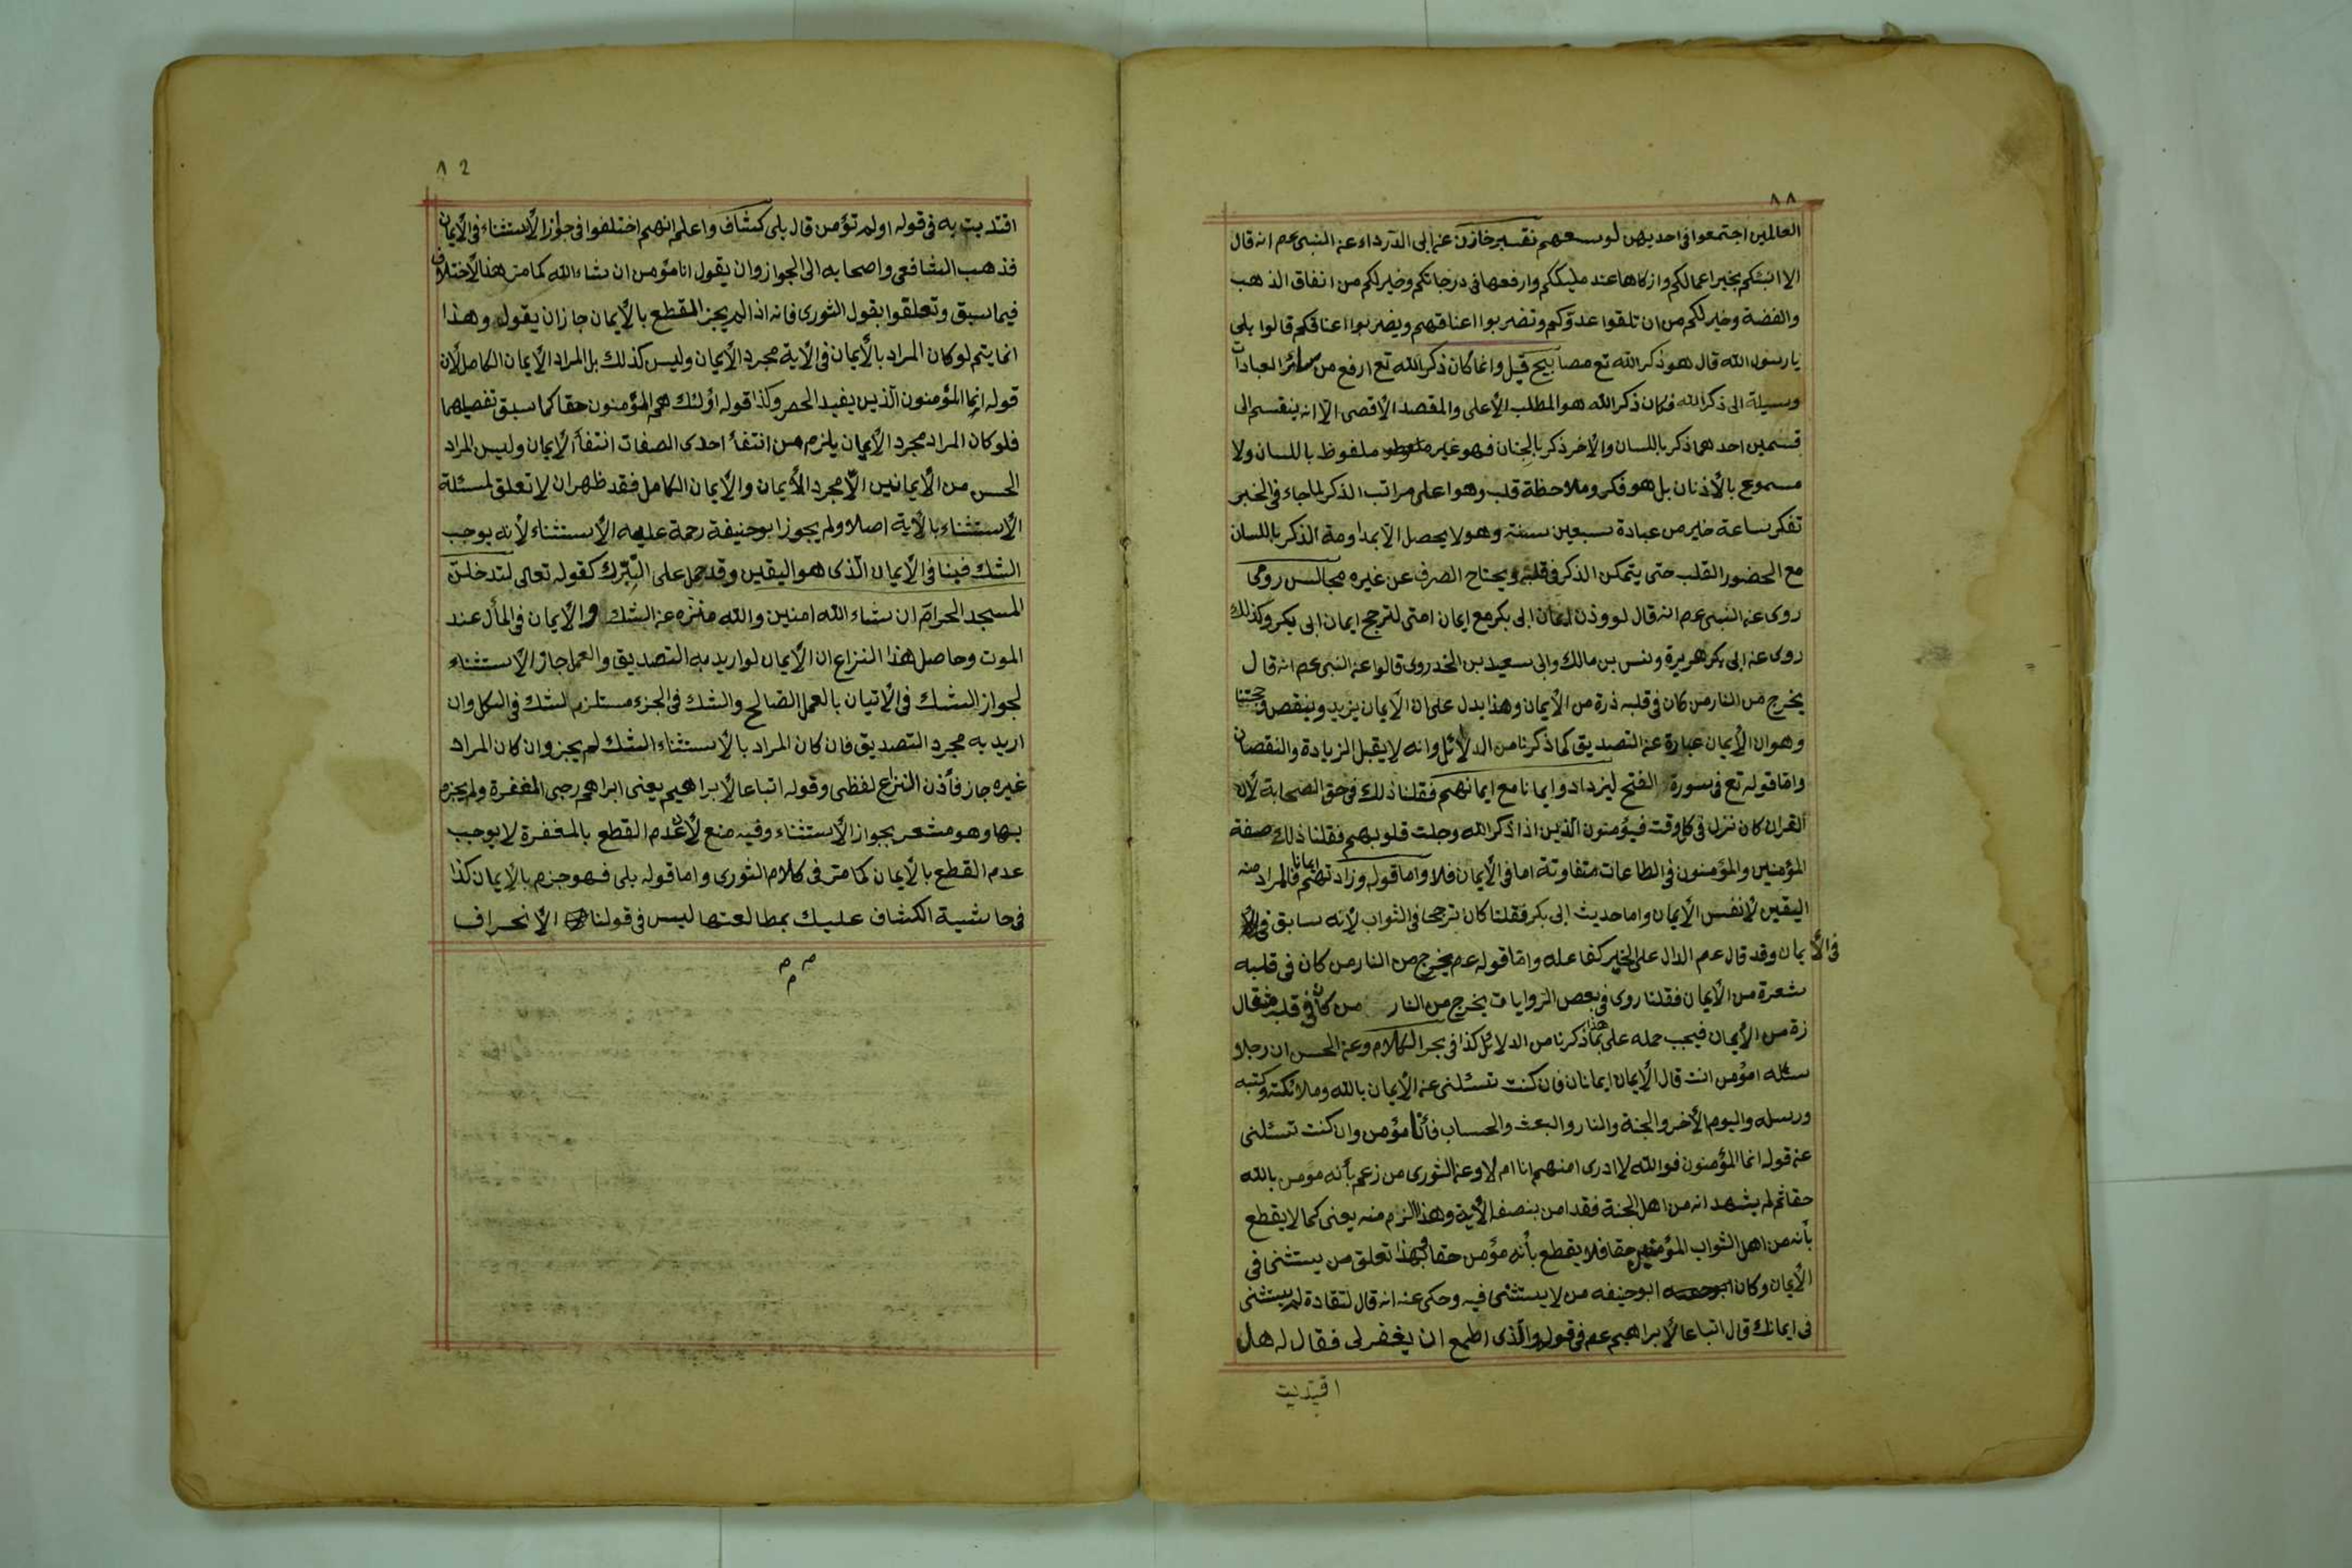 ٨٨
العالمين اجتمعوا فى احديهن لوسعهم تفسير خازن عن ابى الدرداء عن النبى عم انه قال
الا انبئكم بخير اعمالكم وازكاها عند مليككم وارفعها فى درجاتكم وخير لكم من انفاق الذهب
والفضة وخير لكم من ان تلقوا عدوّكم وتضربوا اعناقهم ويضربوا اعناقكم قالوا بلى
يا رسول الله قال هو ذكر الله تع مصابيح قيل وانما كان ذكر الله تع ارفع من سائر العبادات
وسيلة الى ذكر الله فكان ذكر الله هو المطلب الأعلى والمقصد الأقصى الّا انه ينقسم الى
قسمين احدهما ذكر باللسان والأخر ذكر بالجنان فهو غير ملفوظ باللسان ولا
مسموع بالأذنان بل هو فكر وملاحظة قلب وهو اعلى مراتب الذكر لما جاء فى الخبر
تفكر ساعة خير من عبادة سبعين سنة وهو لا يحصل الّا بمداومة الذكر باللسان
مع الحضور القلب حتى يتمكن الذكر فى قلبه ويحتاح الصرف عن غيره مجالس رومى
روى عن النبى عم انه قال لووذن ايمان ابى بكر مع ايمان امتى لترجح ايمان ابى بكر وكذلك
روى عن ابى بكر هريرة ونس بن مالك وابى سعيد بن الخدروى قالوا عن النبى عم انه قال
يخرج من النار من كان فى قلبه ذرة من الأيمان وهذا يدل على ان الأيمان يزيد وينقص وحجتنا
وهو ان الأيمان عبارة عن التصديق كما ذكرنا من الدلائل وانه لا يقبل الزيادة والنقصان
وامّا قوله تع فى سورة الفتح ليزدادوا ايمانا مع ايمانهم فقلنا ذلك فى حق الصحابة لأن
القران كان نزل فى كل وقت فيؤمنون الّذين اذا ذكر الله وجلت قلوبهم فقلنا ذلك صفة
المؤمنين والمؤمنون فى الطاعات متفاوتة اما فى الأيمان فلا واما قوله وزادتهم ايمانا فالمراد منه
اليقين لا نفس الأيمان واما حديث ابى بكر فقلنا كان ترجحا فى الثواب لأنه سابق
فى الأيمان وقد قال عم الدال على الخير كفاعله وامّا قوله عم يخرج من النار من كان فى قلبه
شعرة من الأيمان فقلنا روى فى بعض الروايات يخرج من النار من كان فى قلبه مثقال
زة من الأيمان فيجب حمله على هذا بما ذكرنا من الدلائل كذا فى بحر الكلام وعن الحسن ان رجلا
سئله امؤمن انت قال الأيمان ايمانان فان كنت تسئلنى عن الأيمان بالله وملائكته وكتبه
ورسله واليوم الأخر والجنة والنار والبعث والحساب فأنا مؤمن وان كنت تسئلنى
عن قوله انما المؤمنون فوالله لا ادرى امنهم انا ام لا وعن الثورى من زعم بأنه مومن بالله
حقا ثم لم يشهد انه من اهل الجنة فقد امن بنصف الأية وهذا الزم منه يعنى كما لا يقطع
بأنه من اهل الثواب المؤمنين حقا فلا يقطع بأنه مؤمن حقا وبهذا تعلق من يستثنى فى
الأيمان وكان ابوحنيفه من لا يستثنى فيه وحكى عنه انه قال لتقادة لم يستثنى
فى ايمانك قال اتباعا لأبراهيم عم فى قوله والّذى اطمع ان يغفر لى فقال له هل
اقتديت
٨٩
اقتديت به فى قوله اولم تؤمن قال بلى كشاف واعلم انهم اختلفوا فى جواز الأستثناء فى الأيمان
فذهب الشافعى واصحابه الى الجواز وان يقول انا مؤمن ان شاء الله كما مرّ هذا الأختلاف
فيما سبق وتعلقوا بقول الثورى فانه اذا لم يجز المقطع بالأيمان جاز ان يقول وهذا
انما يتم لو كان المراد بالأيمان فى الأية مجرد الأيمان وليس كذلك بل المراد الأيمان الكامل لأن
قوله انما المؤمنون الّذين يفيد الحصر وكذا قوله اولئك هم المؤمنون حقا كما سبق تفصيلهما
فلو كان المراد مجرد الأيمان يلزم من انتفأ احدى الصفات انتفأ الأيمان وليس المراد
الحسن من الأيمانين الّا مجرد الأيمان والأيمان الكامل فقد ظهر ان لا تعلق لمسئلة
الأستثناء بالأية اصلا ولم يجوز ابوحنيفة رحمة عليه الأستثناء لأنه يوجب
الشك فينا فى الأيمان الّذى هو اليقين وقد حمل على التبرّك كقوله تعالى لتدخلنّ
المسجد الحرام ان شاء الله امنين والله منزه عن الشك والأيمان فى المأل عند
الموت وحاصل هذا النزاع ان الأيمان لو اريد به التصديق والعمل جاز الأستثناء
لجواز الشك فى الأتيان بالعمل الصالح والشك فى الجزء مستلزم لشك فى الكل وان
اريد به مجرد التصديق فان كان المراد بالأستثناء الشك لم يجز وان كان المراد
غيره جاز فأذن النزاع لفظى وقوله اتباعا لأبراهيم يعنى ابراهم رجى المغفرة ولم يجزم
بها وهو مشعر بجواز الأستثناء وفيه منع لأن عدم القطع بالمغفرة لا يوجب
عدم القطع بالأيمان كما مرّ فى كلام الثورى واما قوله بلى فهو جزم بالأيمان كذا
فى حاشية الكشاف عليك بمطالعتها ليس فى قولنا الأنحراف
م م م